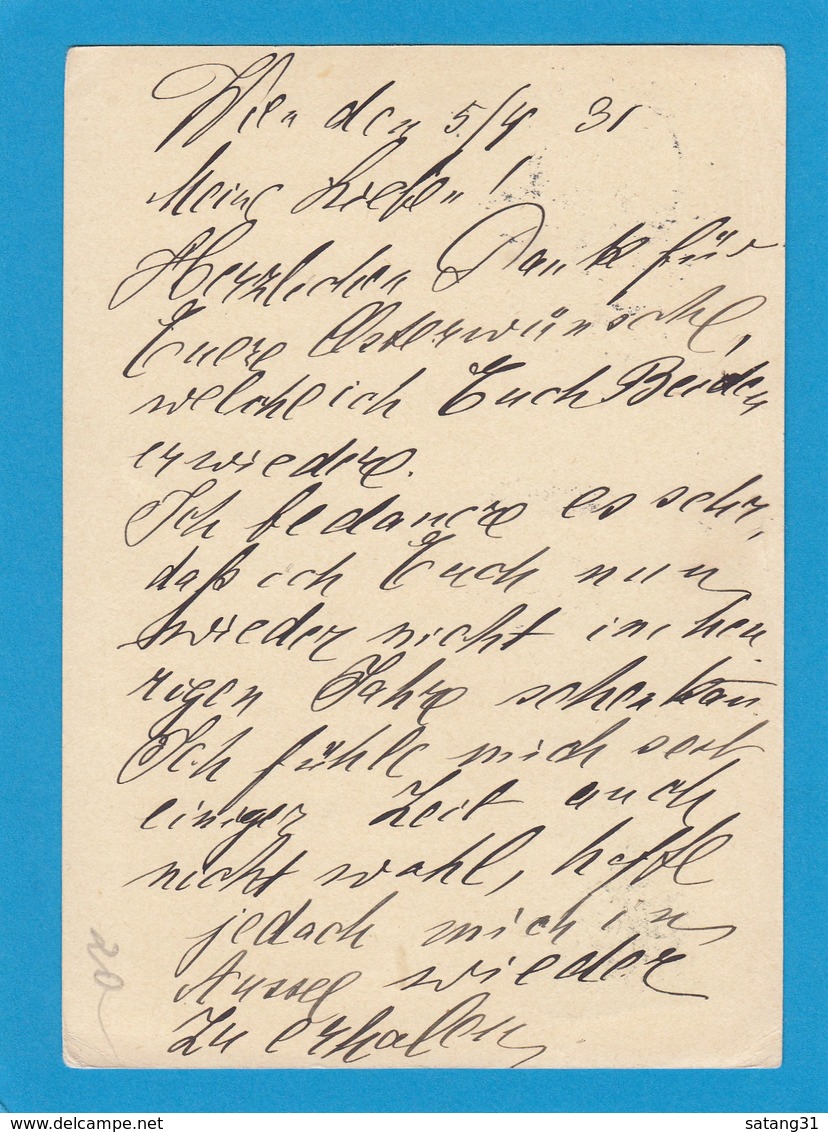 Wien den 5/4 31
Meine Lieben!
Herzlichen Dank für
Euere Osterwünsche,
welche ich Euch Beiden
erwiedere.
Ich bedauere es sehr,
daß ich Euch nun
wieder nicht im heu
rigen Jahre sehen kann
Ich fühle mich seit
einiger Zeit auch
nicht wohl, hoffe
jedoch mich in
Aussee wieder
zu erholen
20
satang31